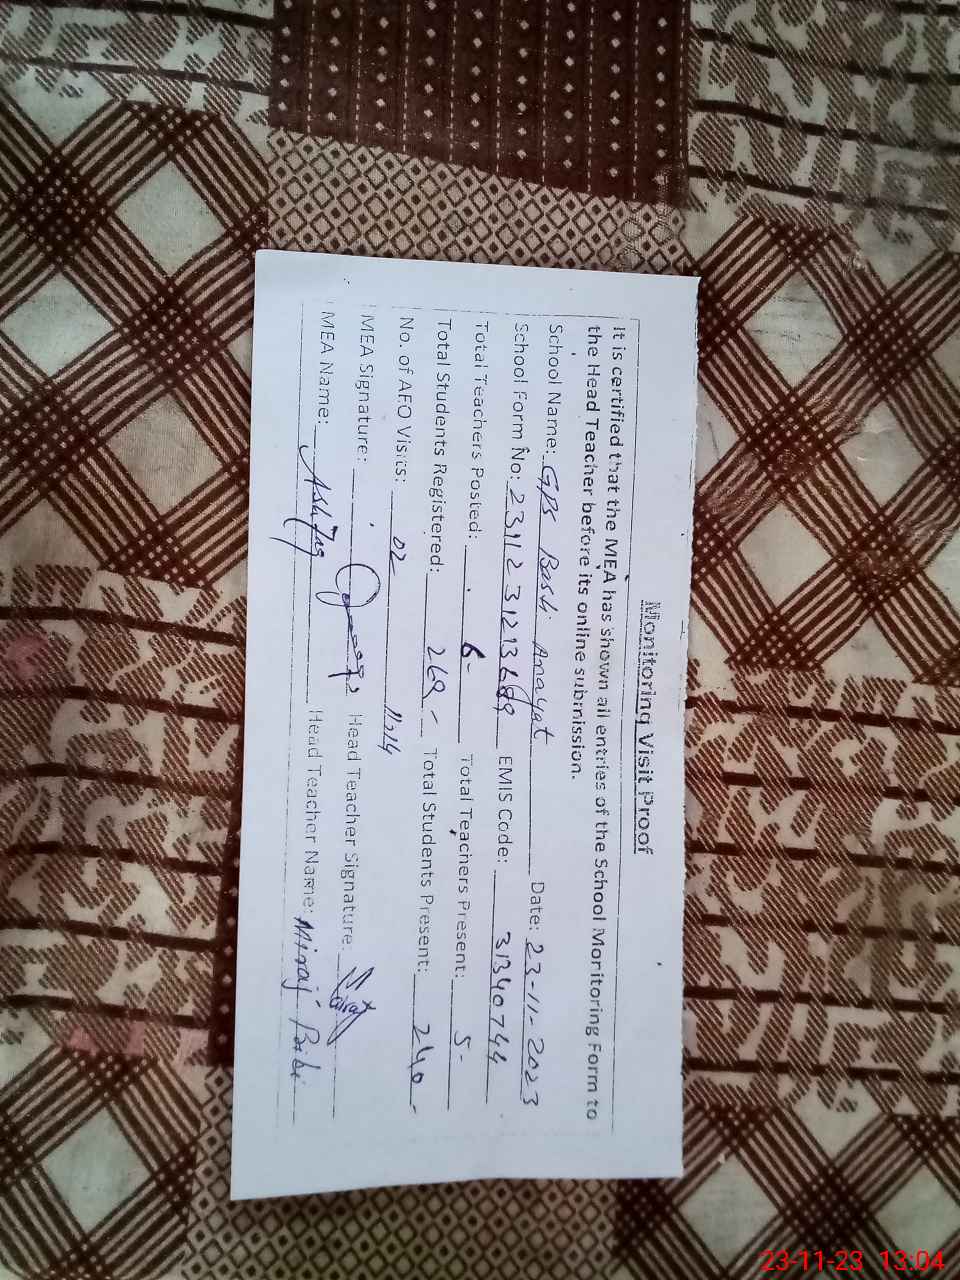 Monitoring Visit Proof
It is certified that the MEA has shown all entries of the School Monitoring Form to
the Head Teacher before its online submission.
School Name: GPS Basti Anayat Date: 23-11-2023
School Form No: EMIS Code: 31340744
Total Teachers Posted: 6- Total Teachers Present: 5-
Total Students Registered: 269- Total Students Present: 240-
No. of AEO Visits: 02
MEA Signature: Head Teacher Signature:
MEA Name: Ashfaq Head Teacher Name: Miraj Bibi
23-11-23 13:04